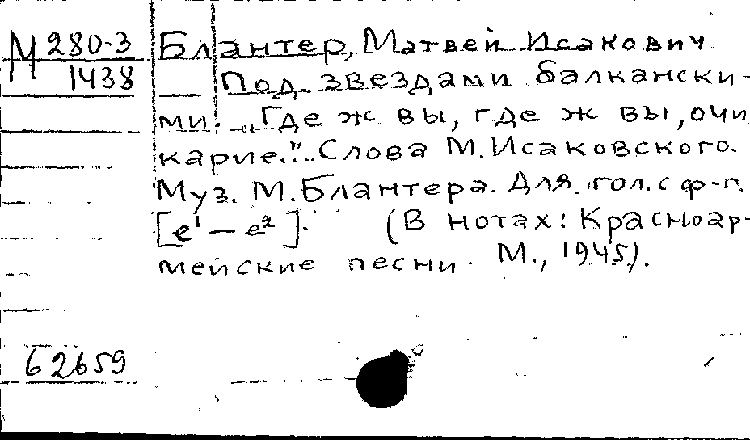 М 280-3 Блантер, Матвей Исакович
1438 Под звездами балкански-
ми. „Где ж вы, где ж вы, очи
карие." Слова М. Исаковского.
Муз. М. Блантера. Для гол. с ф-п.
[e¹ – e²]. (В нотах: Красноар-
мейские песни. М., 1945).
62659